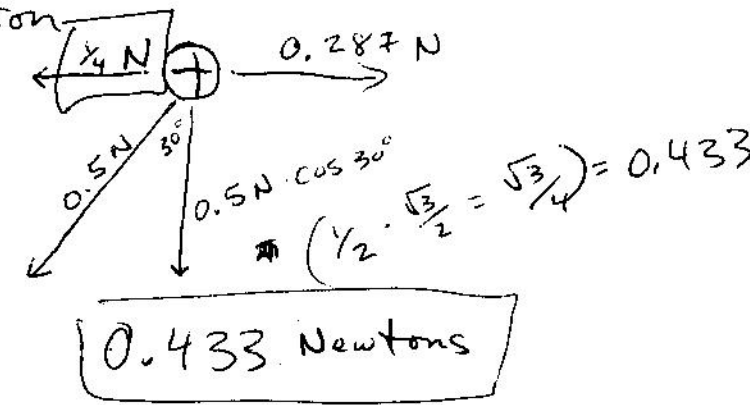 ton
¼ N
+
0.287 N
0.5N
30°
0.5N · cos 30°
(½ · √3/2 = √3/4) = 0.433
0.433 Newtons